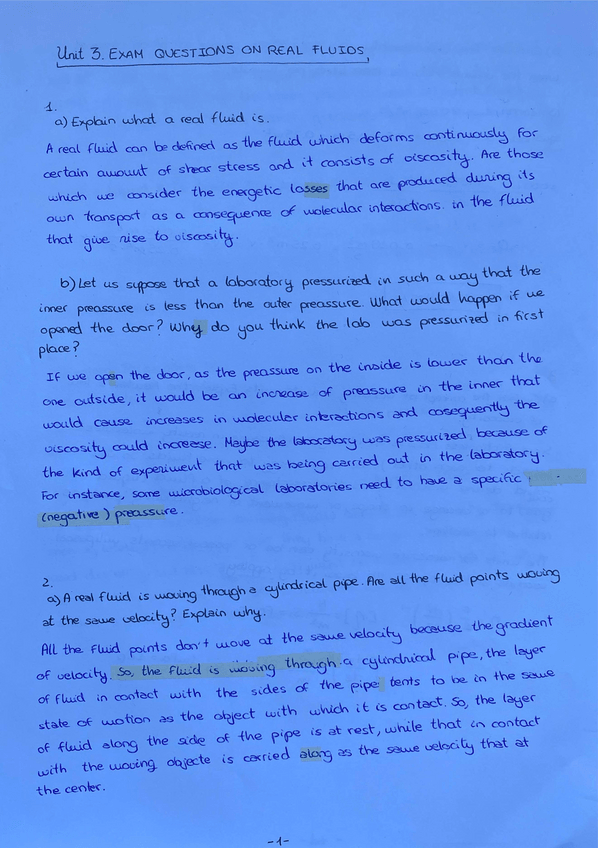 Unit 3. EXAM QUESTIONS ON REAL FLUIDS
1.
a) Explain what a real fluid is.
A real fluid can be defined as the fluid which deforms continuously for
certain amount of shear stress and it consists of viscosity. Are those
which we consider the energetic losses that are produced during its
own transport as a consequence of molecular interactions in the fluid
that give rise to viscosity.
b) Let us suppose that a laboratory pressurized in such a way that the
inner preassure is less than the outer preassure. What would happen if we
opened the door? Why do you think the lab was pressurized in first
place?
If we open the door, as the preassure on the inside is lower than the
one outside, it would be an increase of preassure in the inner that
would cause increases in molecular interactions and cosequently the
viscosity could increase. Maybe the laboratory was pressurized because of
the kind of experiment that was being carried out in the laboratory.
For instance, some microbiological laboratories need to have a specific
(negative) preassure.
2.
a) A real fluid is moving through a cylindrical pipe. Are all the fluid points moving
at the same velocity? Explain why.
All the fluid points don't move at the same velocity because the gradient
of velocity. So, the fluid is moving through a cylindrical pipe, the layer
of fluid in contact with the sides of the pipe tents to be in the same
state of motion as the object with which it is contact. So, the layer
of fluid along the side of the pipe is at rest, while that in contact
with the moving objecte is carried along as the same velocity that at
the center.
-1-